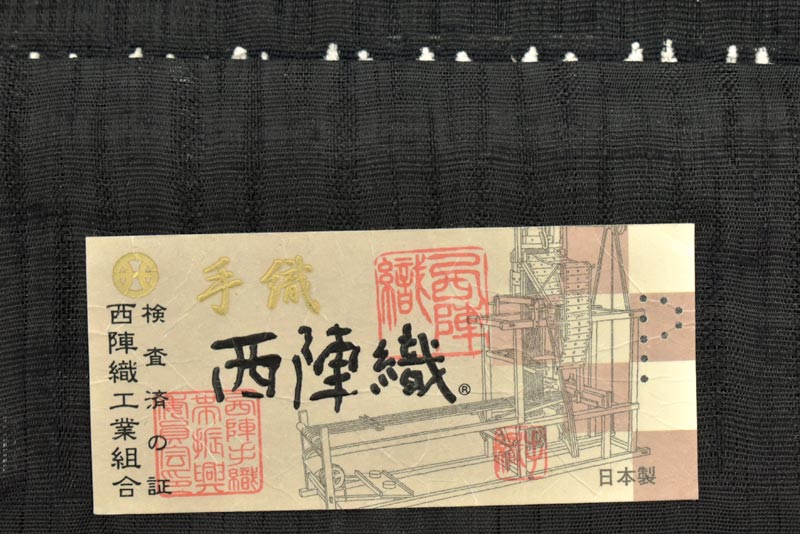 手織
西陣織®
検査済の証
西陣織工業組合
西陣織
西陣手織
帯振興
委員会之印
日本製